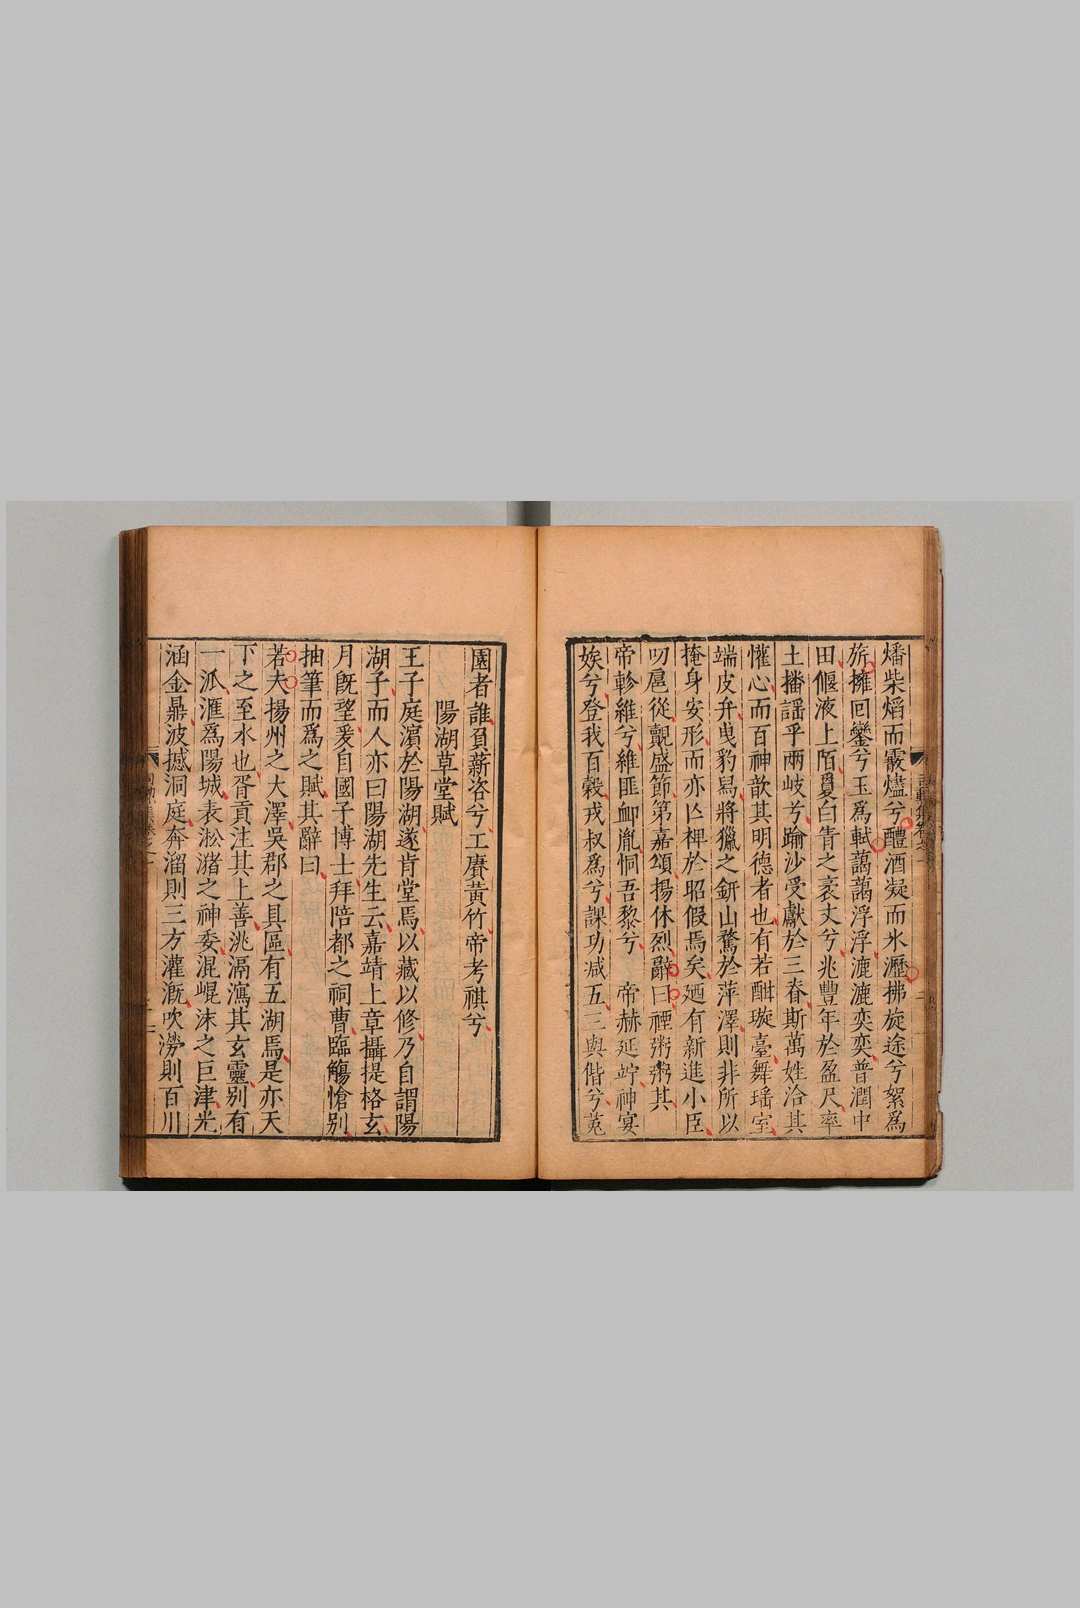 燔柴熖而霰燼兮醴酒凝而氷瀝拂旋途兮絮為
旂擁回鑾兮玉為軾藹藹浮浮漉漉奕奕普潤中
田偃液上陌曼曰青之袤丈兮兆豐年於盈尺率
土播謡乎兩岐兮踰沙受獻於三眷斯萬姓洽其
懽心而百神歆其明德者也有若酣璇臺舞瑶室
端皮弁曳豹舄將獵之鈃山騖於萍澤則非所以
掩身安形而亦亾裨於昭假焉矣廼有新進小臣
叨扈從覿盛節第嘉頌揚休烈辭曰禋粥粥其
帝軫維兮維匪卹胤恫吾黎兮 帝赫延竚神宴
娭兮登我百穀戎叔為兮課功減五三與偕兮莬
園者誰負薪咨兮工賡黃竹帝考祺兮
陽湖草堂賦
王子庭濵於陽湖遂肯堂焉以藏以修乃自謂陽
湖子而人亦曰陽湖先生云嘉靖上章攝提格玄
月旣朢爰自國子博士拜陪都之祠曹臨觴愴别
抽筆而為之賦其辭曰
若夫揚州之大澤吳郡之具區有五湖焉是亦天
下之至水也胥貢注其上善洮滆瀉其玄靈别有
一泒滙為陽城表淞瀦之神委混崐沫之巨津光
涵金鼎波撼洞庭奔溜則三方灌漑吹澇則百川